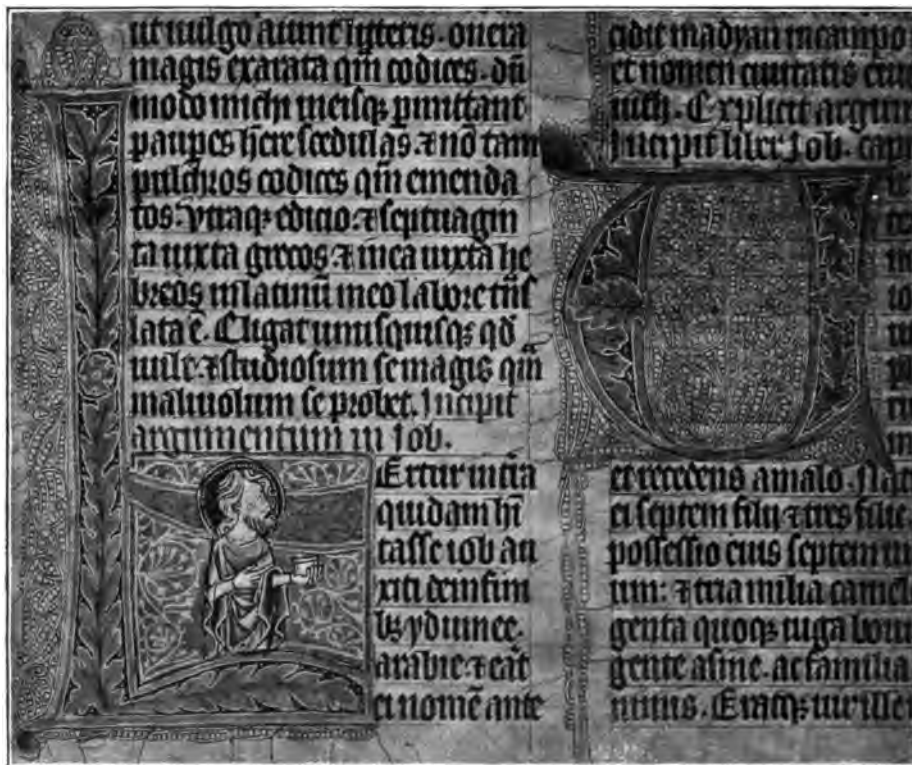 ut uulgo aiunt litteris. onera
magis exarata qm̄ codices. dū
modo michi meisq; pmittant
paupes hēre scedulas. ⁊ nō tam
pulchros codices qm̄ emenda
tos. vtraq; edicio. ⁊ septuagin
ta iuxta grecos ⁊ mea iuxta he
breos in latinū meo labore tn̄s
lata ē. Eligat unusquisq; qd̄
uult. ⁊ studiosum se magis qm̄
maliuolum se probet. Incipit
argumentum in Iob.
Fertur in tr̄a
quidam hī
tasse iob au
xiti de in fini
b; ydumee.
arabie. ⁊ eāt
ei nomē ante
cidit madyan in campo
et nomen ciuitatis eius
uith. Explicit argum
Incipit liber Iob. cap
U
et recedens a malo. Nat
ei septem filii ⁊ tres filie
possessio eius septem m
um: ⁊ tria milia camel
genta quoq; iuga bou
gente asine. ac familia
nimis. Eratq; uir ille